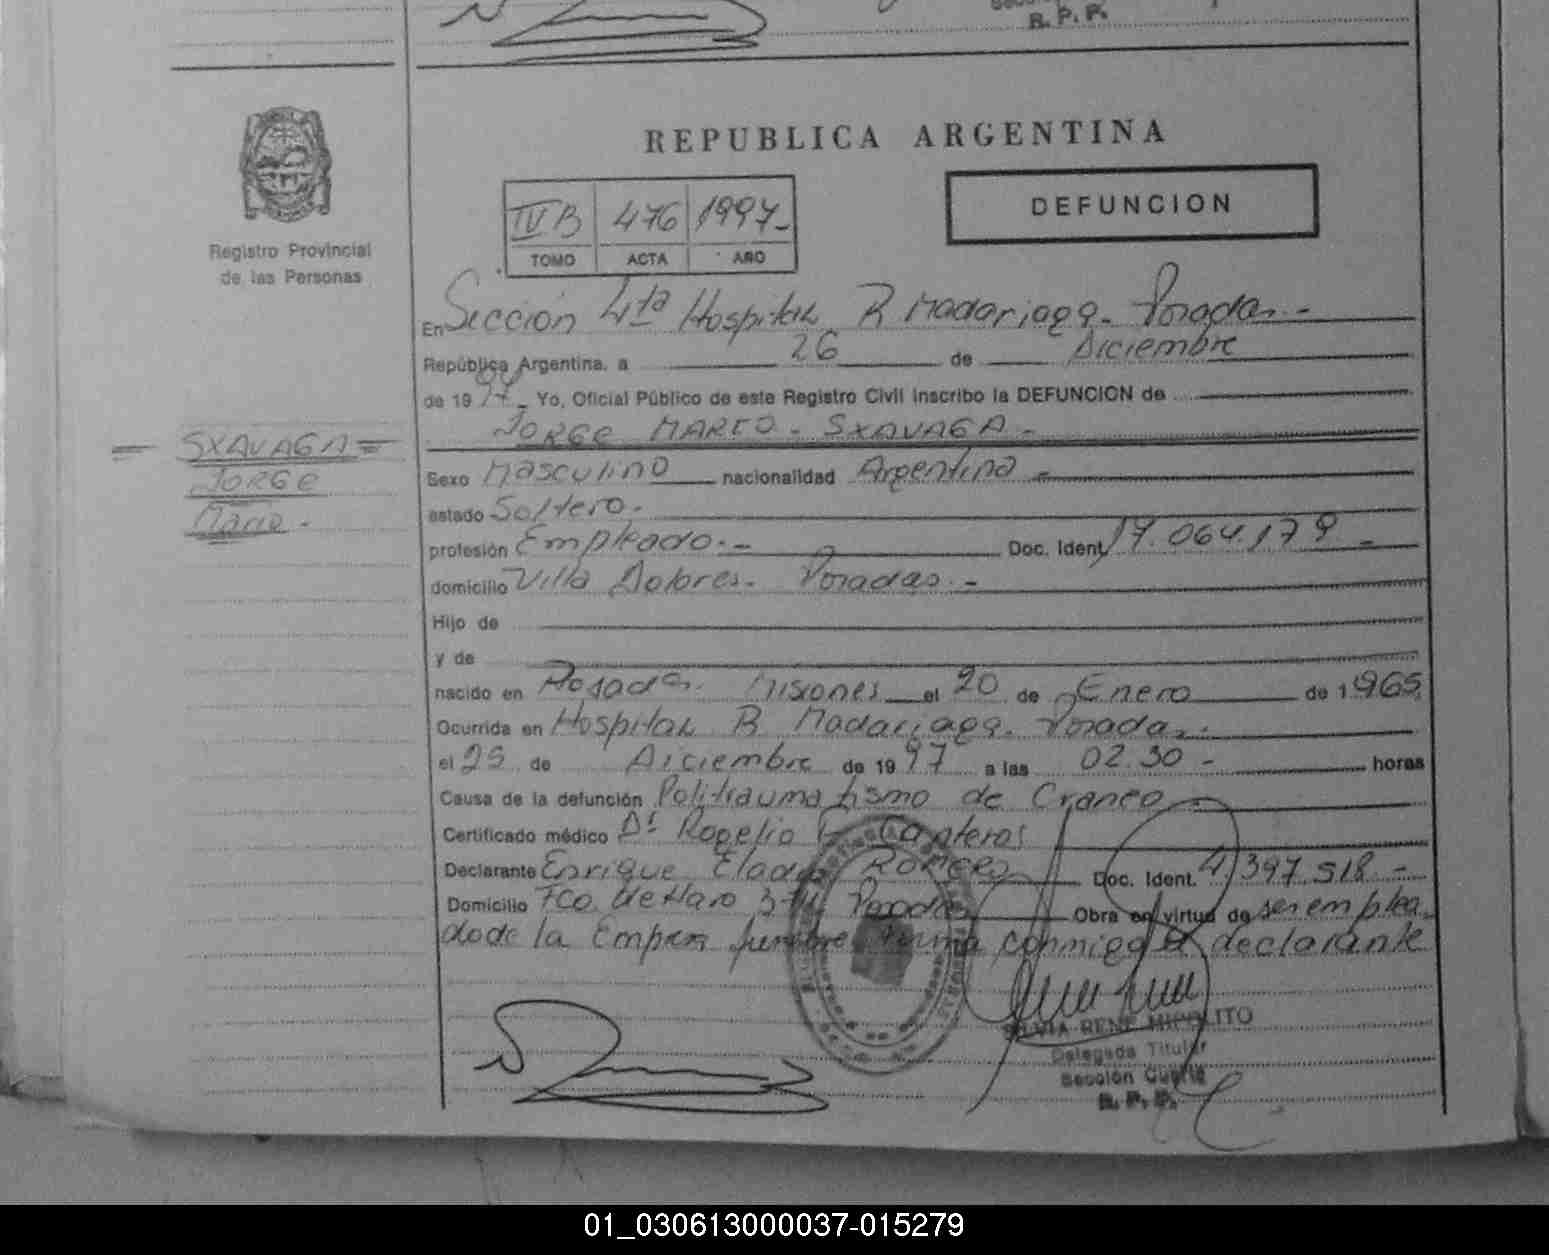 R. P. P.
REPUBLICA ARGENTINA
IV B 476 1997-
TOMO ACTA AÑO
DEFUNCION
Registro Provincial
de las Personas
En Sección 4ta Hospital R Madariaga - Posadas -
República Argentina, a 26 de Diciembre
de 1997 - Yo, Oficial Público de este Registro Civil inscribo la DEFUNCION de
JORGE MARIO - SXAVAGA -
= SXAVAGA =
JORGE
Mario -
Sexo Masculino nacionalidad Argentina -
estado Soltero -
profesión Empleado - Doc. Ident. 17.064.179 -
domicilio Villa Dolores - Posadas -
Hijo de
y de
nacido en Posadas - Misiones el 20 de Enero de 1.965
Ocurrida en Hospital R Madariaga - Posadas -
el 25 de Diciembre de 1997 a las 02.30 - horas
Causa de la defunción Politraumatismo de Craneo -
Certificado médico Dr Rogelio Canteros
Declarante Enrique Eladio ROMERO Doc. Ident. 4.397.518 -
Domicilio Fco. de Haro Posadas Obra en virtud de ser emplea
do de la Empresa funebre firma conmigo el declarante
SILVIA RENE HIPOLITO
Delegada Titular
Sección Cuarta
R. P. P.
01_030613000037-015279